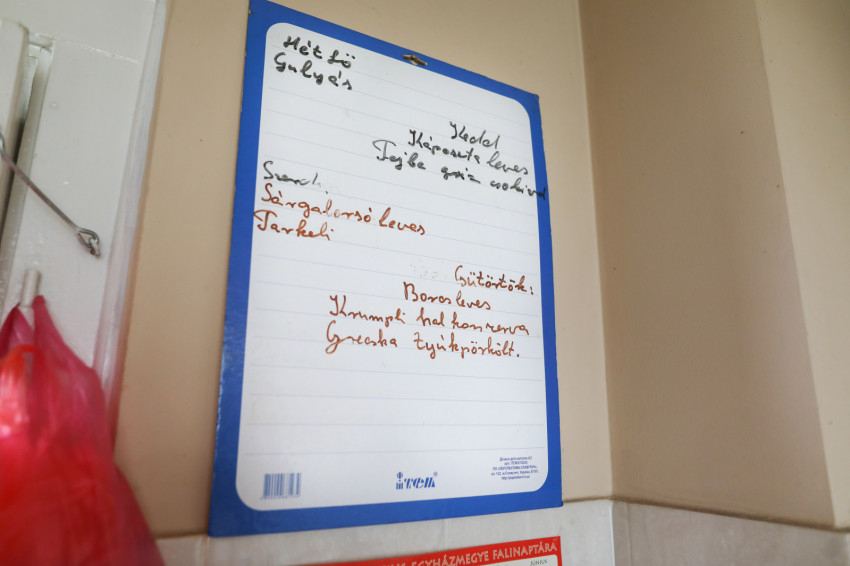 Hét fő
Gulyás
Kedd
Káposzta leves
Tejbe gríz csokival
Szerd.
Sárgaborsó leves
Tarkeli
Csütörtök:
Boros leves
Krumpli hal konzerva
Grecska Tyúkpörkölt.
ITEM
EGYHÁZMEGYE FALINAPTÁRA
JÚNIUS